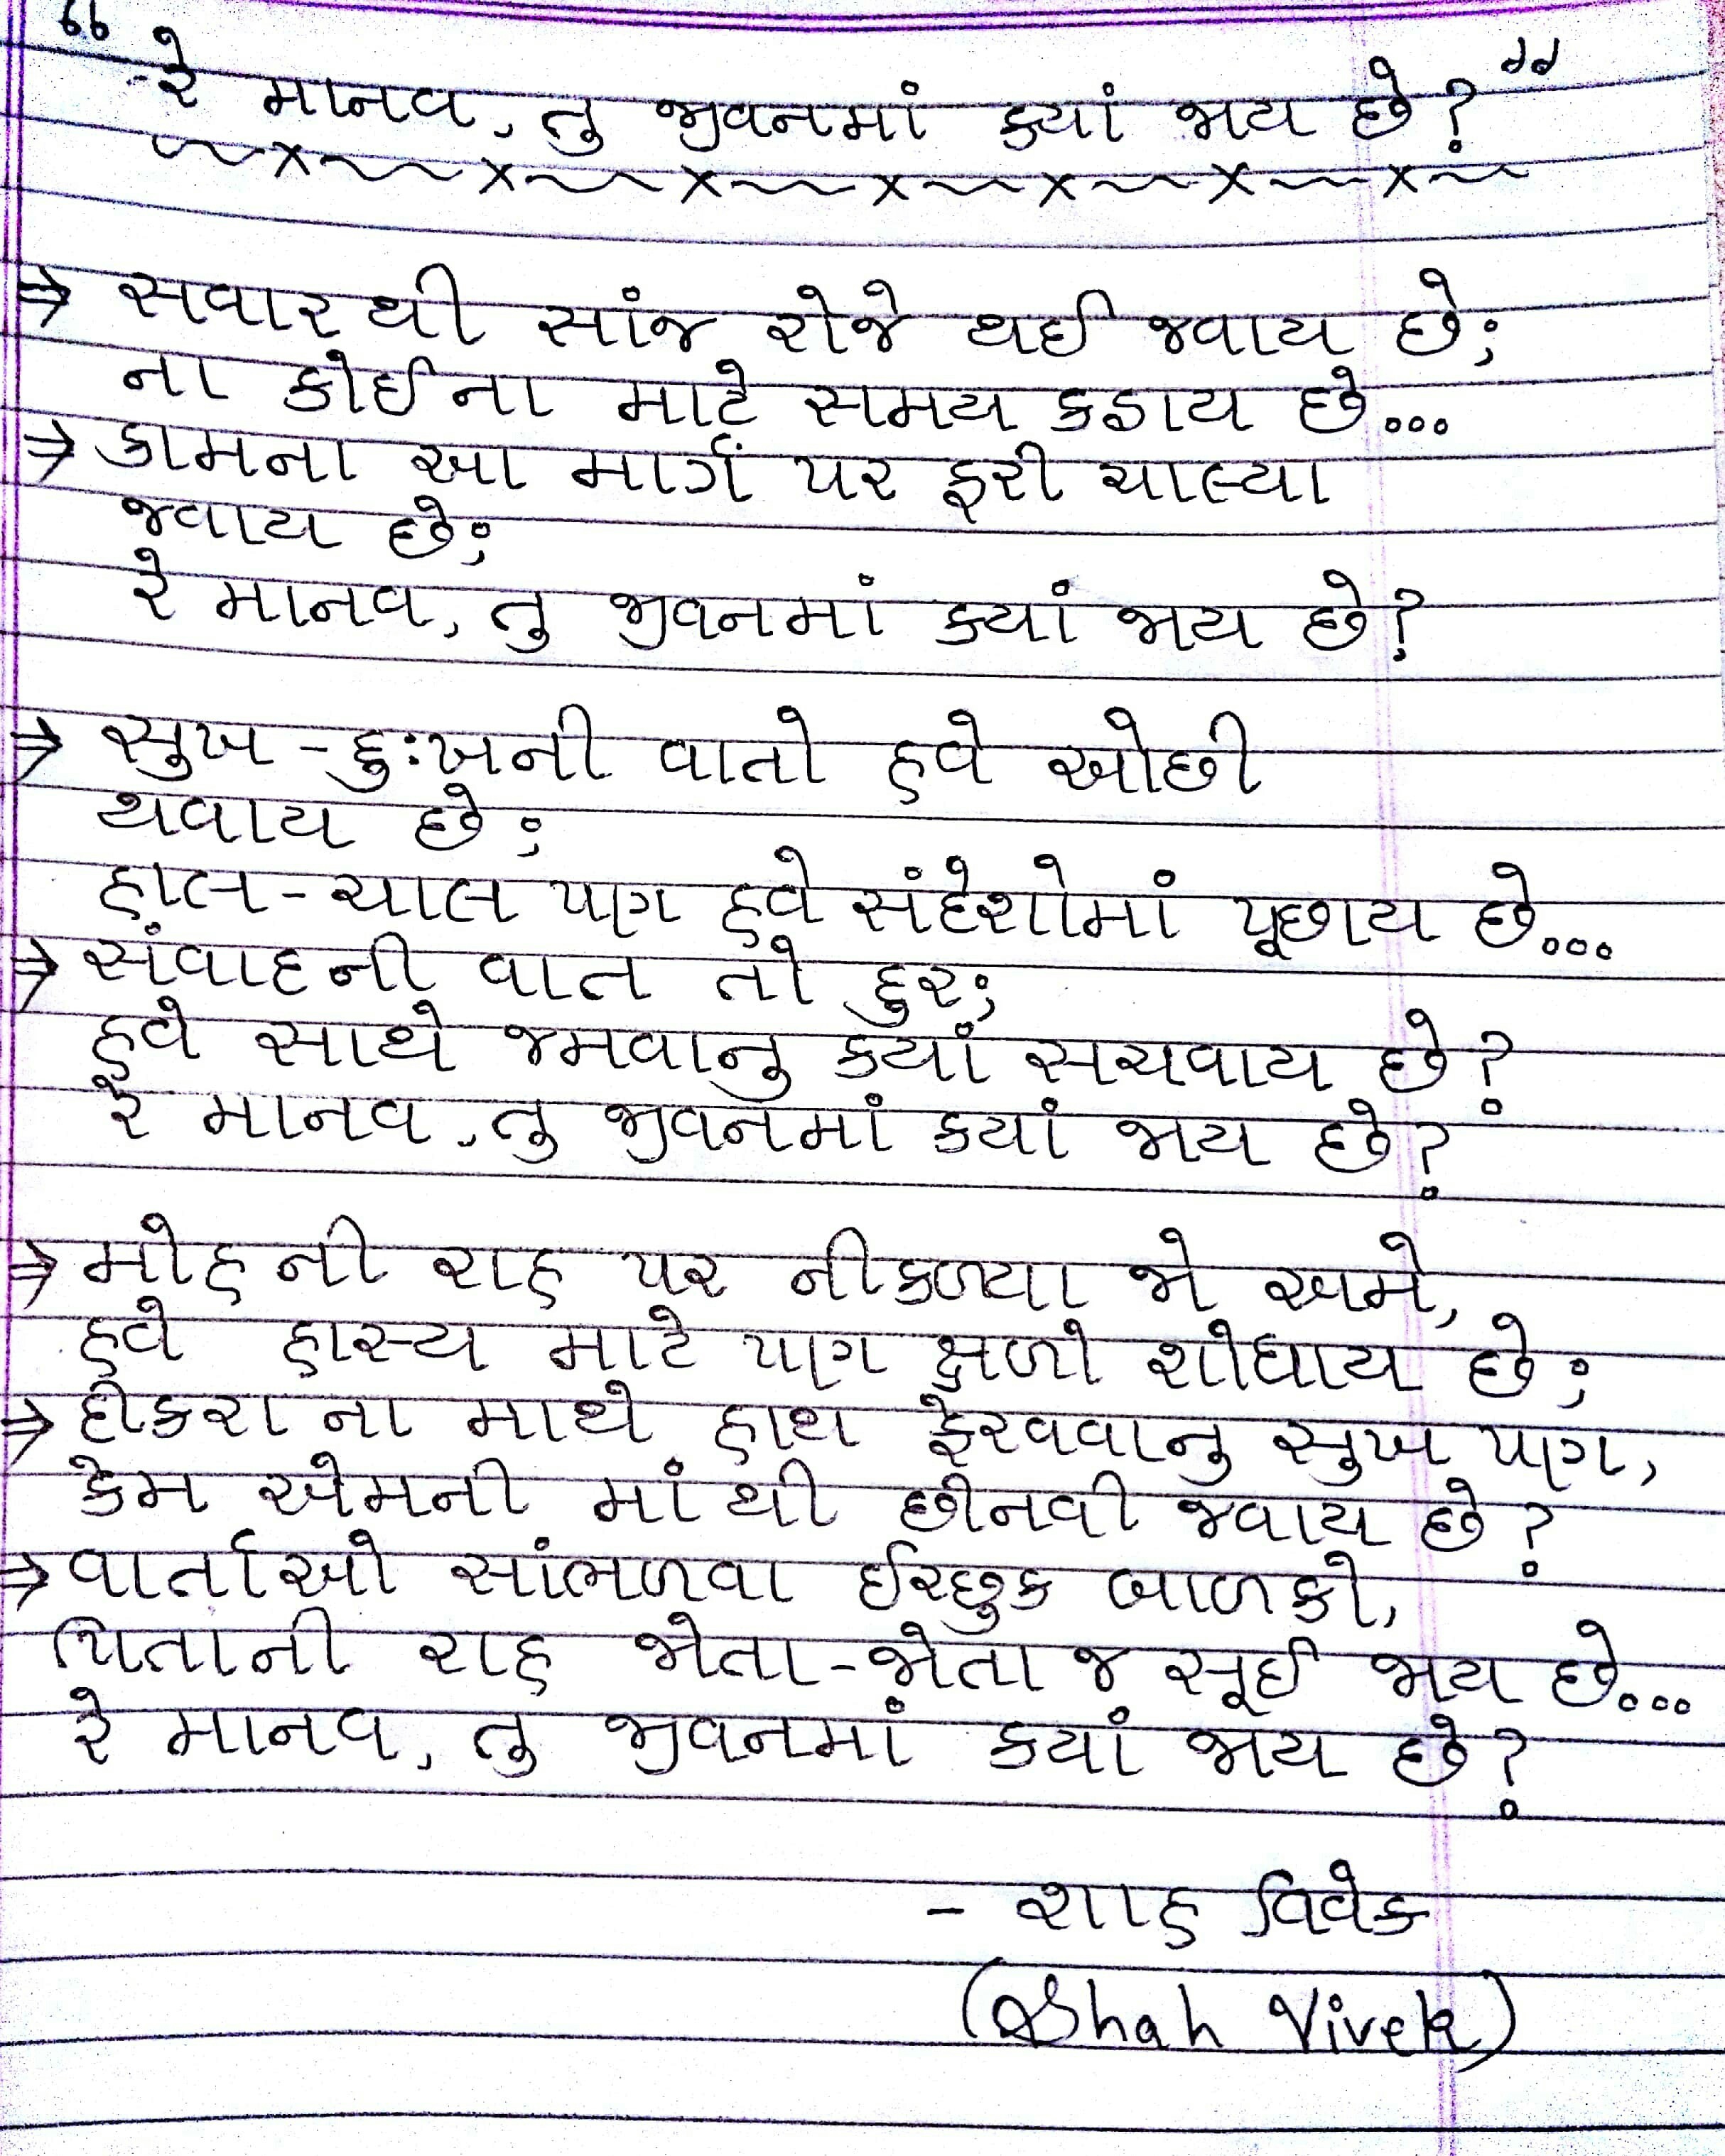 “રે માનવ, તુ જીવનમાં ક્યાં જાય છે?”
⇒ સવારથી સાંજ રોજે થઈ જવાય છે;
ના કોઈના માટે સમય કઢાય છે...
⇒ કામના આ માર્ગ પર ફરી ચાલ્યા
જવાય છે;
રે માનવ, તુ જીવનમાં ક્યાં જાય છે?
⇒ સુખ-દુ:ખની વાતો હવે ઓછી
થવાય છે;
હાલ-ચાલ પણ હવે સંદેશોમાં પૂછાય છે...
⇒ સંવાદની વાત તો દુર;
હવે સાથે જમવાનુ ક્યાં સચવાય છે?
રે માનવ, તુ જીવનમાં ક્યાં જાય છે?
⇒ મોહની રાહ પર નીકળ્યા જો અમે,
હવે હાસ્ય માટે પણ ક્ષળો શોધાય છે;
⇒ દીકરાના માથે હાથ ફેરવવાનુ સુખ પણ,
કેમ એમની માંથી છીનવી જવાય છે?
⇒ વાર્તાઓ સાંભળવા ઈચ્છુક બાળકો,
પિતાની રાહ જોતા-જોતા જ સૂઈ જાય છે...
રે માનવ, તુ જીવનમાં ક્યાં જાય છે?
- શાહ વિવેક
(Shah Vivek)